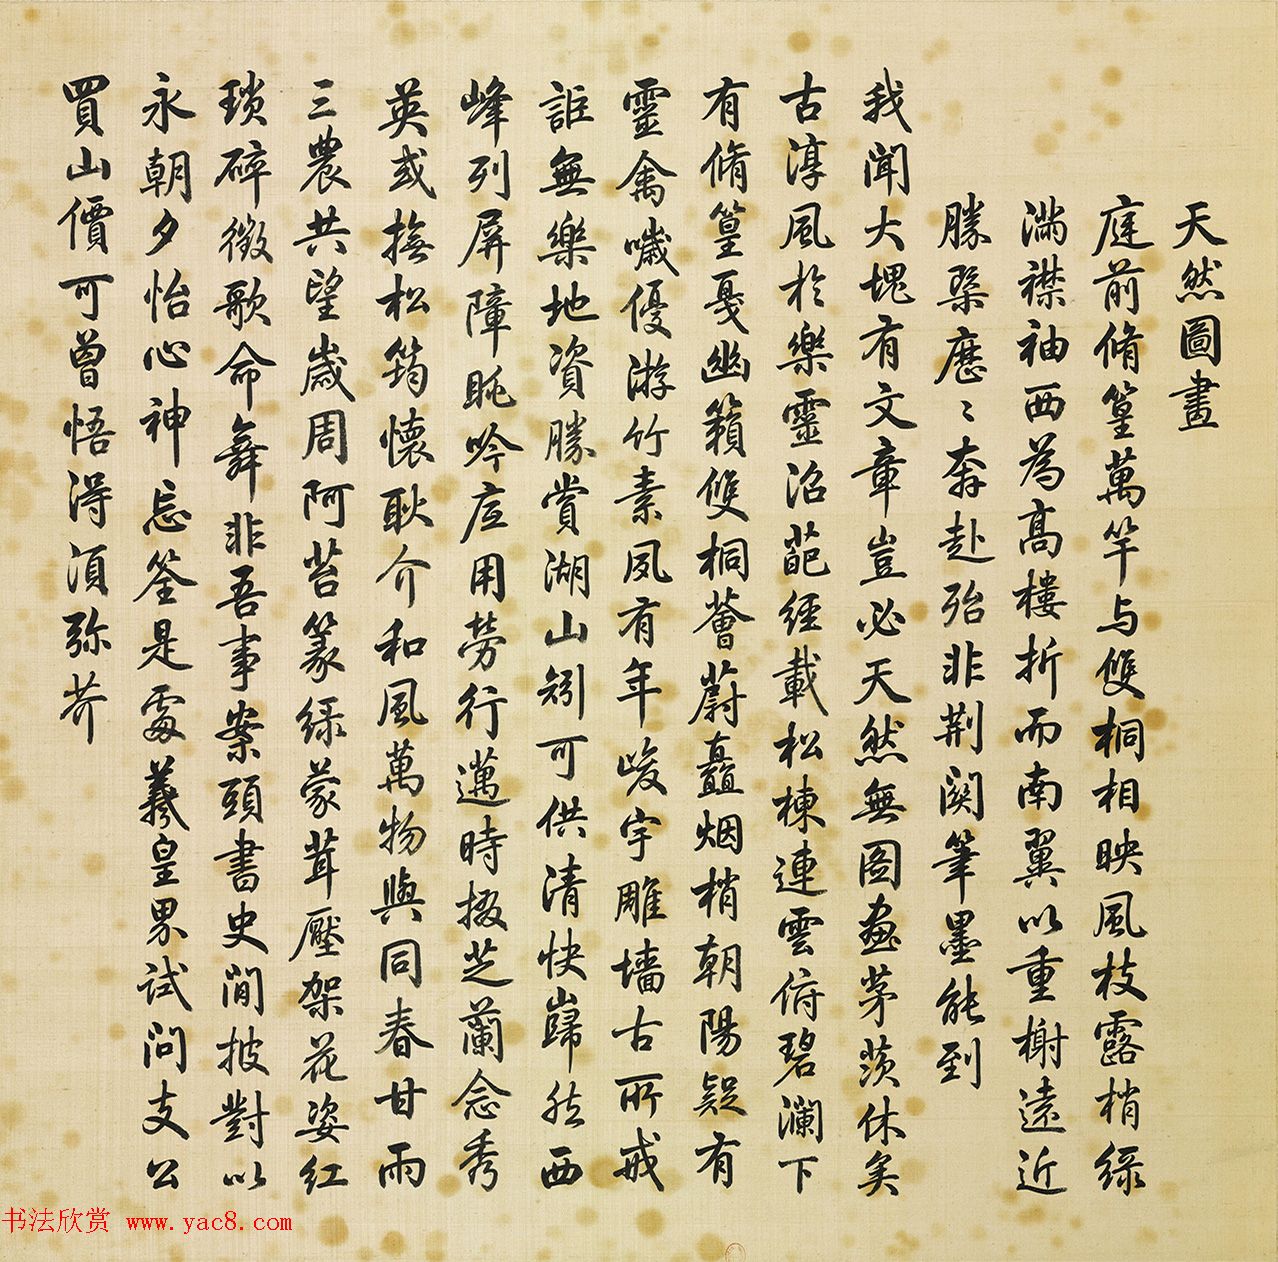 天然圖畫
庭前脩篁萬竿与雙桐相映風枝露梢綠
滿襟袖西為高樓折而南翼以重榭遠近
勝槩歷〻奔赴殆非荆関筆墨能到
我聞大塊有文章豈必天然無圖畫茅茨休矣
古淳風於樂靈沼葩經載松棟連雲俯碧瀾下
有脩篁戛幽籟雙桐薈蔚矗烟梢朝陽疑有
靈禽噦優游竹素夙有年峻宇雕墻古所戒
詎無樂地資勝賞湖山矧可供清快歸然西
峰列屏障眺吟底用勞行邁時掇芝蘭念秀
英或撫松筠懷耿介和風萬物與同春甘雨
三農共望歲周阿苔篆綠蒙茸壓架花姿紅
瑣碎徵歌命舞非吾事案頭書史閒披對以
永朝夕怡心神忘筌是處羲皇界試問支公
買山價可曾悟得須弥芥
书法欣赏 www.yac8.com